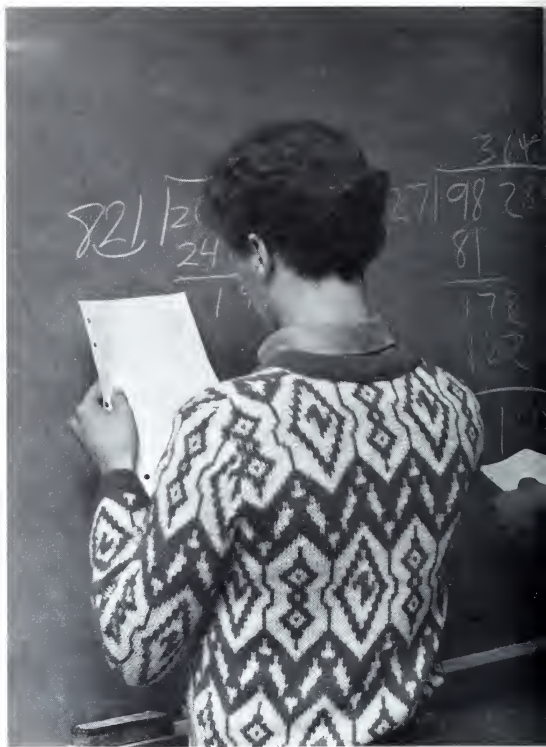 821
24
1
364
27 98 28
81
178
162
1